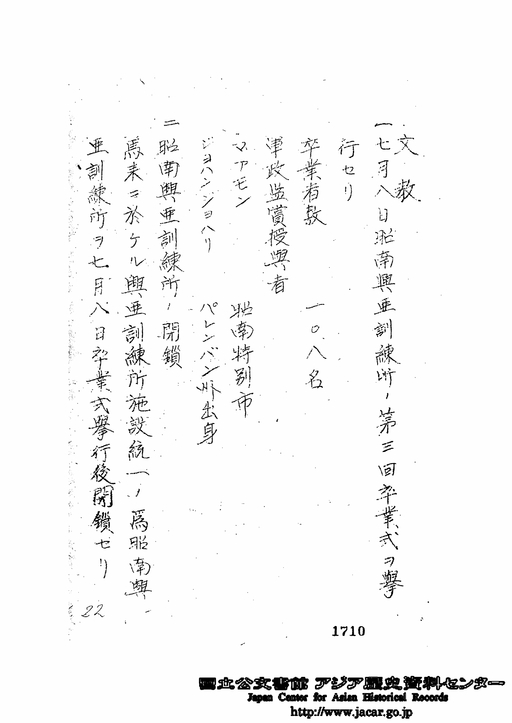 文教
一七月八日昭南興亜訓練所ノ第三回卒業式ヲ擧
行セリ
卒業者数 一〇八名
軍政監賞授與者
マアモン 昭南特別市
ジョハンジョハリ パレンバン州出身
二 昭南興亜訓練所ノ閉鎖
馬来ニ於ケル興亜訓練所施設統一ノ爲昭南興
亜訓練所ヲ七月八日卒業式擧行後閉鎖セリ
22
1710
國立公文書館 アジア歴史資料センター
Japan Center for Asian Historical Records
http://www.jacar.go.jp